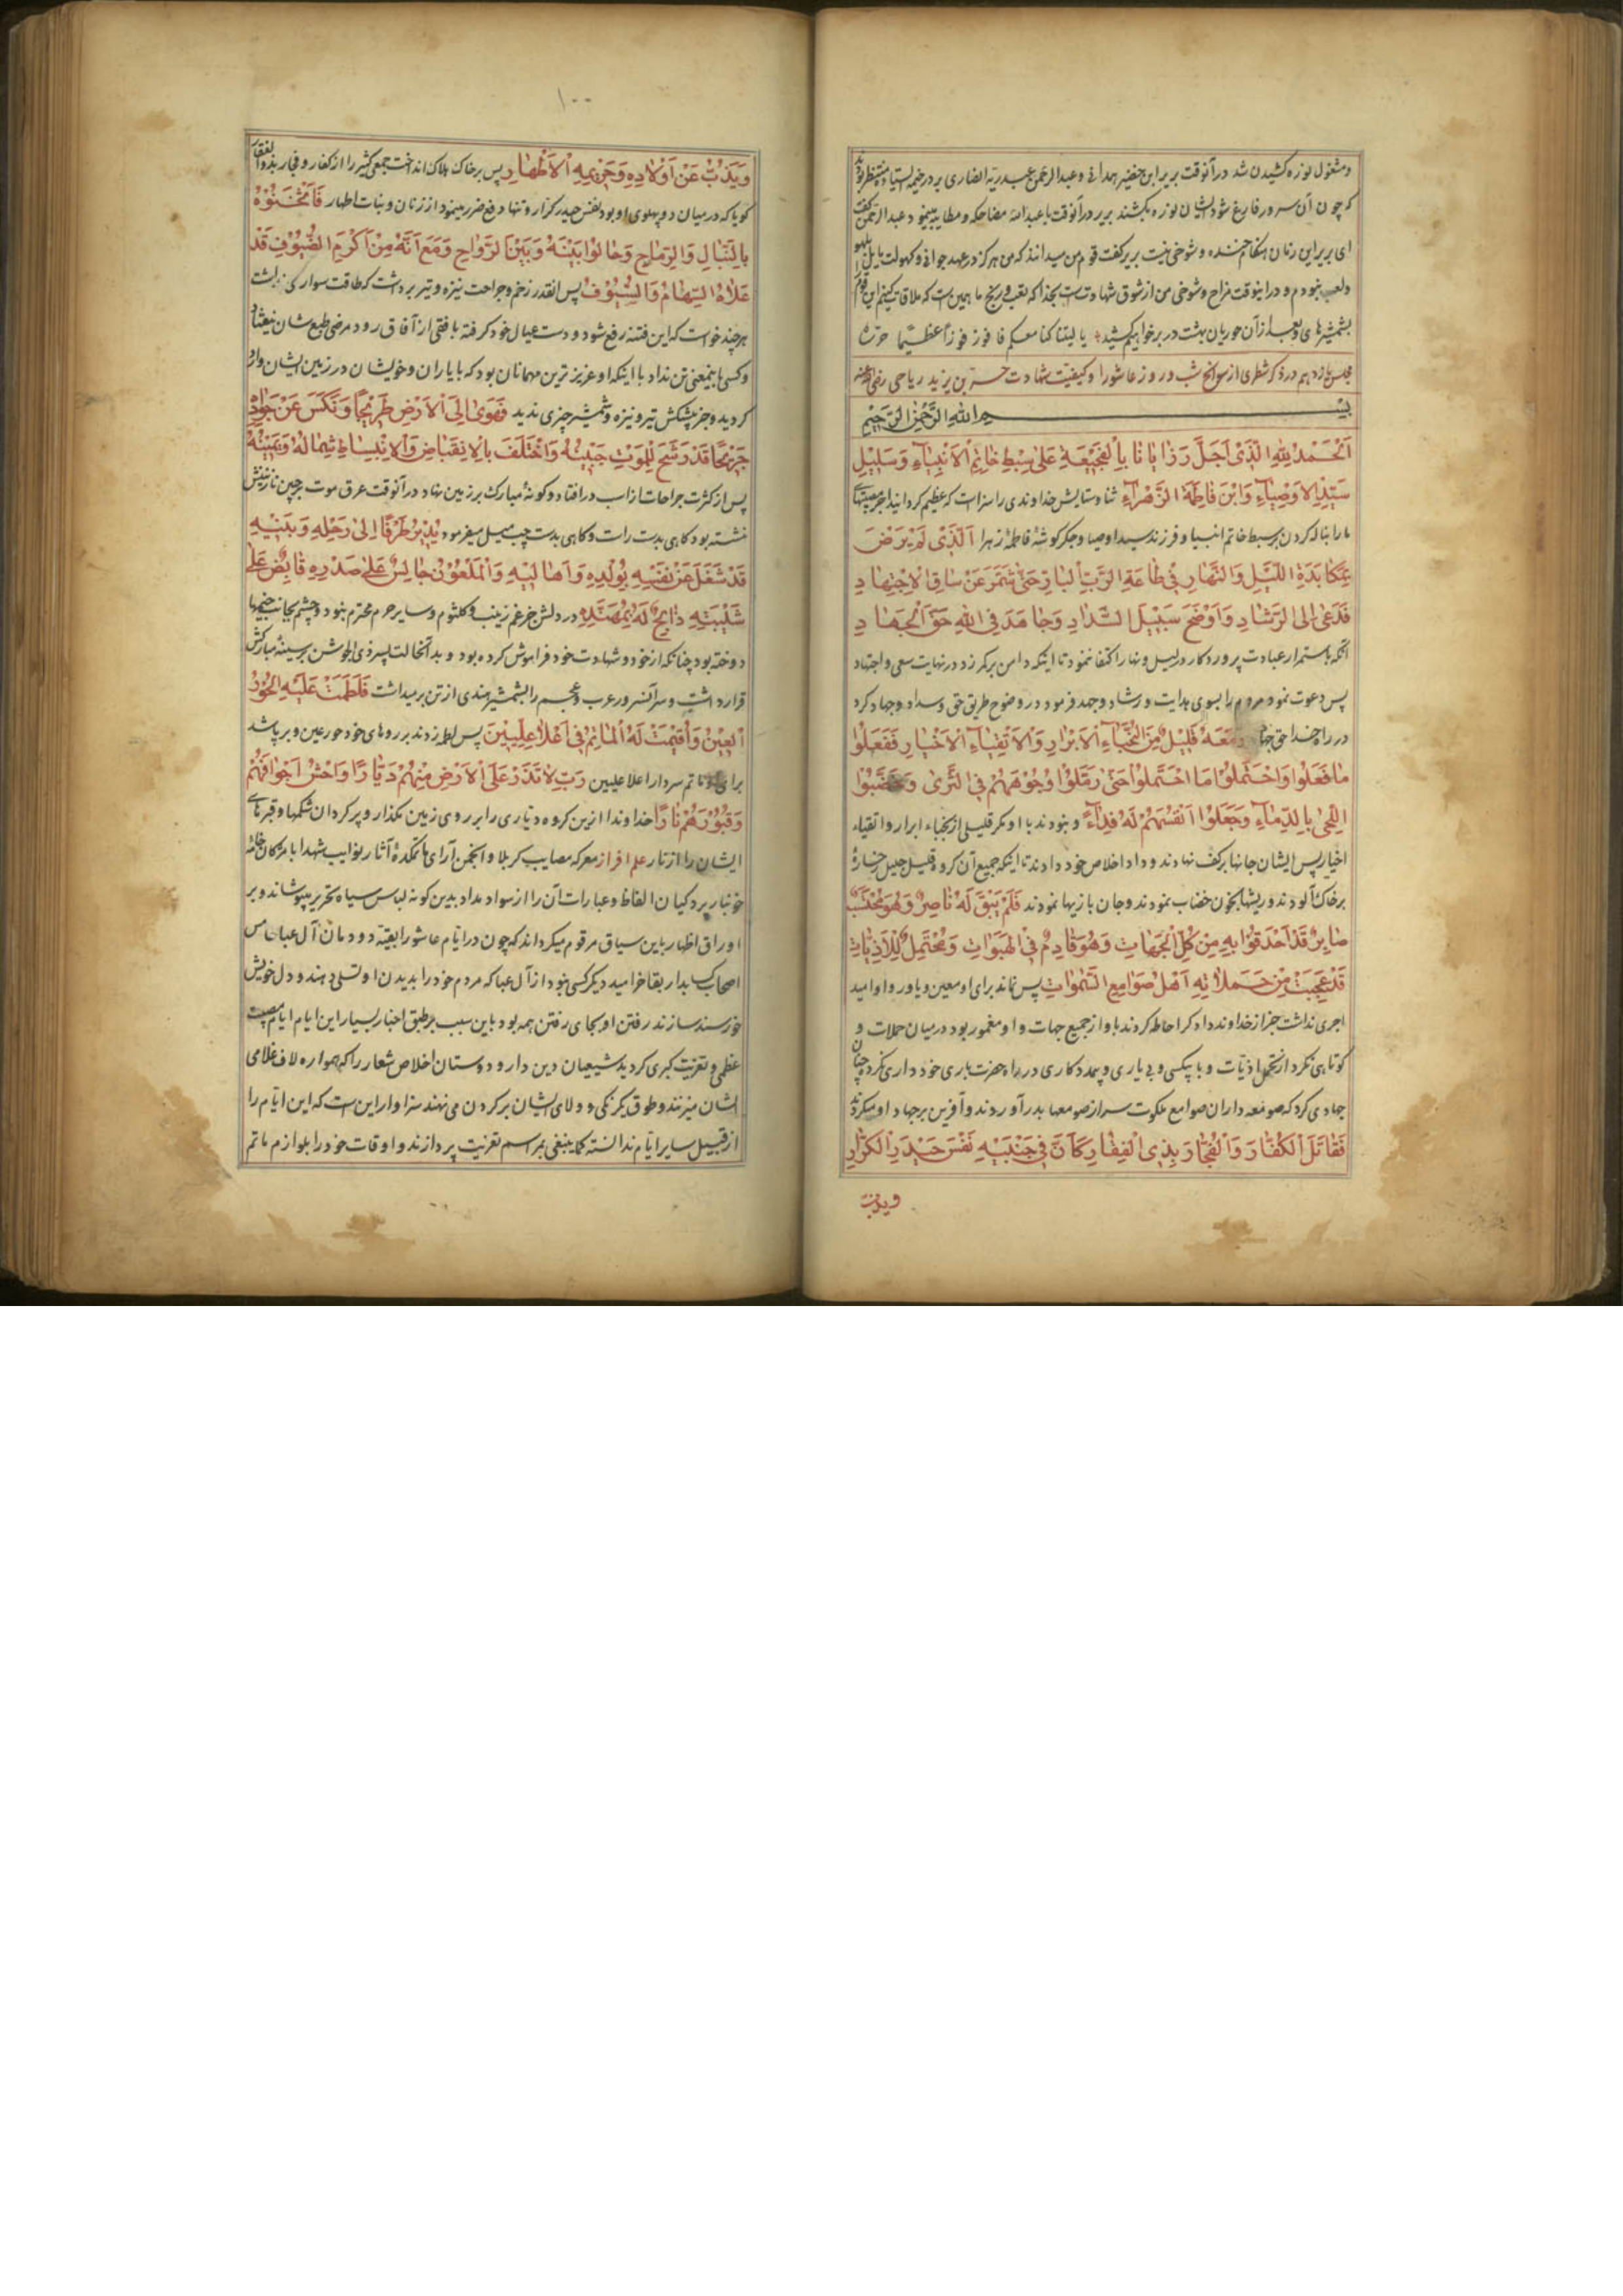 و مشغول نوره کشیدن شد در آنوقت بریر ابن خضیر همدانی و عبدالرحمن عبد ربه انصاری بر در خیمه ایستاده منتظر بودند
که چون آن سرور فارغ شود ایشان نوره بکشند بریر در آنوقت با عبدالله مضاحکه و مطایبه مینمود عبدالرحمن گفت
ای بریر این زمان هنگام خنده و شوخی نیست بریر گفت قوم من میدانند که من هرگز در عهد جوانی و کهولت مایل بلهو
و لعب نبودم و در اینوقت مزاح و شوخی من از شوق شهادتست بخدا که تعب و رنج ما همین است که ملاقات کنیم این قوم را
بشمشیرهای و بعد از آن حوریان بهشت در بر خواهیم کشید یا لیتنا کنا معکم فافوز فوزا عظیما
مجلس یازدهم در ذکر شطری از سوانح شب و روز عاشورا و کیفیت شهادت حر بن یزید ریاحی رضی الله عنه
بسم الله الرحمن الرحیم
اَلْحَمْدُ لِلّٰهِ الَّذی اَجَلَّ رَزایانا بِالْفَجیعَةِ عَلیٰ سِبْطِ خاتَمِ الْاَنْبِیاءِ وَسَلیلِ
سَیِّدِ الْاَوْصِیاءِ وَابْنِ فاطِمَةَ الزَّهْراءِ ثنا و ستایش خداوندی را سزاست که عظیم گردانید اجر مصیبتهای
ما را بناله کردن بر سبط خاتم انبیا و فرزند سید اوصیا و جگرگوشهٔ فاطمهٔ زهرا اَلَّذی لَمْ یَرْضَ
بِمُکابَدَةِ اللَّیْلِ وَالنَّهارِ فی طاعَةِ الرَّبِّ الْبارِ حَتّیٰ شَمَّرَ عَنْ ساقِ الْاِجْتِهادِ
فَدَعیٰ اِلَی الرَّشادِ وَاَوْضَحَ سَبیلَ السَّدادِ وَجاهَدَ فِی اللهِ حَقَّ الْجِهادِ
آنکه باستمرار عبادت پروردکار در لیل و نهار اکتفا ننمود تا اینکه دامن بر کمر زد در نهایت سعی و اجتهاد
پس دعوت نمود مردم را بسوی هدایت و رشاد و جهد فرمود در وضوح طریق حق و سداد و جهاد کرد
در راه خدا حق جهاد وَمَعَهُ قَلیلٌ مِنَ النُّجَباءِ الْاَبْرارِ وَالْاَتْقِیاءِ الْاَخْیارِ فَفَعَلُوا
ما فَعَلُوا وَاحْتَمَلُوا مَا احْتَمَلُوا حَتّیٰ رَمَّلُوا وُجُوهَهُمْ فِی الثَّریٰ وَخَضَّبُوا
اللِّحیٰ بِالدِّماءِ وَجَعَلُوا اَنْفُسَهُمْ لَهُ فِداءً و نبودند با او مگر قلیلی از نجباء ابرار و اتقیاء
اخیار پس ایشان جانها بر کف نهادند و داد اخلاص خود دادند تا اینکه جمیع آن گروه قلیل جلیل رخساره
بر خاک آلودند و ریشها بخون خضاب نمودند و جان بازیها نمودند فَلَمْ یَبْقَ لَهُ ناصِرٌ وَهُوَ مُحْتَسِبٌ
صابِرٌ قَدْ اَحْدَقُوا بِهِ مِنْ کُلِّ الْجِهاتِ وَهُوَ قادِمٌ فِی الْهَبَواتِ وَمُحْتَمِلٌ لِلْاَذِیّاتِ
قَدْ عَجِبَتْ مِنْ حَمَلاتِهِ اَهْلُ صَوامِعِ السَّمٰواتِ پس نماند برای او معین و یاور و او امید
اجری نداشت جز از خداوند دادگر احاطه کردند باو از جمیع جهات و او مغمور بود در میان حملات و
کوتاهی نکرد از تحمل اذیات و با بیکسی و بی یاری و بیمددکاری در راه حضرت باری خودداری نکرد چنان
جهادی کرد که صومعه داران صوامع ملکوت سر از صومعها بدر آوردند و آفرین بر جهاد او میکردند
فَقاتَلَ الْکُفّارَ وَالْفُجّارَ بِذِی الْفِقارِ کَاَنَّ فی جَنْبَیْهِ نَفْسَ حَیْدَرِ الْکَرّارِ
ویذب
۱۰۰
وَیَذُبُّ عَنْ اَوْلادِهِ وَحَریمِهِ الْاَطْهارِ پس بر خاک هلاک انداخت جمعی کثیر را از کفار و فجار بذوالفقار
گویا که در میان دو پهلوی او بود نفس حیدر کرار و تنها دفع ضرر مینمود از زنان و بنات اطهار فَاَثْخَنُوهُ
بِالنِّبالِ وَالرِّماحِ وَحالُوا بَیْنَهُ وَبَیْنَ الرَّواحِ وَمَعَ اَنَّهُ مِنْ اَکْرَمِ الضُّیُوفِ قَدْ
عَلاهُ السِّهامُ وَالسُّیُوفُ پس آنقدر زخم و جراحت نیزه و تیر برداشت که طاقت سواری نداشت
هر چند خواست که این فتنه رفع شود و دست عیال خود گرفته بافقی از آفاق رود مرضی طبع شان نیفتاد
و کسی باینمعنی تن نداد با اینکه او عزیزترین مهمانان بود که با یاران و خویشان در زمین ایشان وارد
گردید و جز پیشکش تیر و نیزه و شمشیر چیزی ندید فَهَویٰ اِلَی الْاَرْضِ طَریحًا وَنَکَسَ عَنْ جَوادِهِ
جَریحًا قَدْ رَشَحَ لِلْمَوْتِ جَبینُهُ وَاخْتَلَفَ بِالْاِنْقِباضِ وَالْاِنْبِساطِ شِمالُهُ وَیَمینُهُ
پس از کثرت جراحات از اسب در افتاد و گونهٔ مبارک بر زمین نهاد در آنوقت عرق موت بر جبین نازنینش
نشسته بود گاهی بدست راست و گاهی بدست چپ میل میفرمود یُدیرُ طَرْفًا اِلیٰ رَحْلِهِ وَبَیْتِهِ
قَدْ شَغَلَ عَنْ نَفْسِهِ بِوُلْدِهِ وَاَهالیهِ وَالْمَلْعُونُ جالِسٌ عَلیٰ صَدْرِهِ قابِضٌ عَلیٰ
شَیْبَتِهِ ذابِحٌ لَهُ بِمُهَنَّدِهِ در دلش جز غم زینب و کلثوم و سایر حرم محترم نبود و چشم بجانب خیمها
دوخته بود چنانکه از خود و شهادت خود فراموش کرده بود و بدانحالت پسر ذی الجوشن بر سینهٔ مبارکش
قرار داشت و سر آنسرور عرب و عجم را بشمشیر هندی از تن برمیداشت فَلَطَمَتْ عَلَیْهِ الْحُورُ
الْعینُ وَاُقیمَتْ لَهُ الْمَاتِمُ فی اَعْلا عِلِّیّینَ پس لطمه زدند بر روهای خود حور عین و بر پا شد
برای او ماتم سردار اعلا علیین رَبِّ لا تَذَرْ عَلَی الْاَرْضِ مِنْهُمْ دَیّارًا وَاحْشُ اَجْوافَهُمْ
وَقُبُورَهُمْ نارًا خداوندا ازین گروه دیاری را بر روی زمین مگذار و پر گردان شکمها و قبرهای
ایشان را از نار علم افراز معرکه مصایب کربلا و انجمن آرای ماتمکدهٔ آثار نوایب شهدا با مژگان خامه
خونبار بردگیان الفاظ و عبارات آن را از سواد مداد بدین گونه لباس سیاه تحریر میپوشاند و بر
اوراق اظهار باین سیاق مرقوم میگرداند که چون در ایام عاشورا بقیه دودمان آل عبا
اصحاب کسا بدار بقا خرامید دیگر کسی نبود از آل عبا که مردم خود را بدیدن او تسلی دهند و دل خویش
خورسند سازند رفتن او بجای رفتن همه بود باین سبب بر طبق اخبار بسیار این ایام ایام مصیبت
عظمی و تعزیت کبری گردید شیعیان دین دار و دوستان اخلاص شعار را که همواره لاف غلامی
ایشان میزنند و طوق یکرنگی و ولای ایشان بر گردن می نهند سزاوار این است که این ایام را
از قبیل سایر ایام ندانسته کما ینبغی بمراسم تعزیت پردازند و اوقات خود را بلوازم ماتم